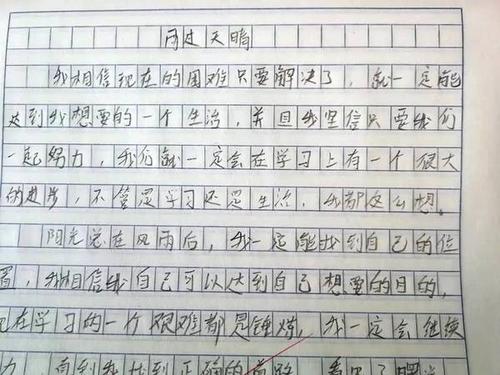 雨过天晴
我相信现在的困难只要解决了，就一定能
达到我想要的一个生活，并且我坚信只要我们
一起努力，我们就一定会在学习上有一个很大
的进步，不管是学习还是生活，我都这么想。
阳光总在风雨后，我一定能找到自己的位
置，我相信我自己可以达到自己想要的目的，
现在学习的一个艰难都是锤炼，我一定会继续
力，直到我找到正确的道路，看见了曙光